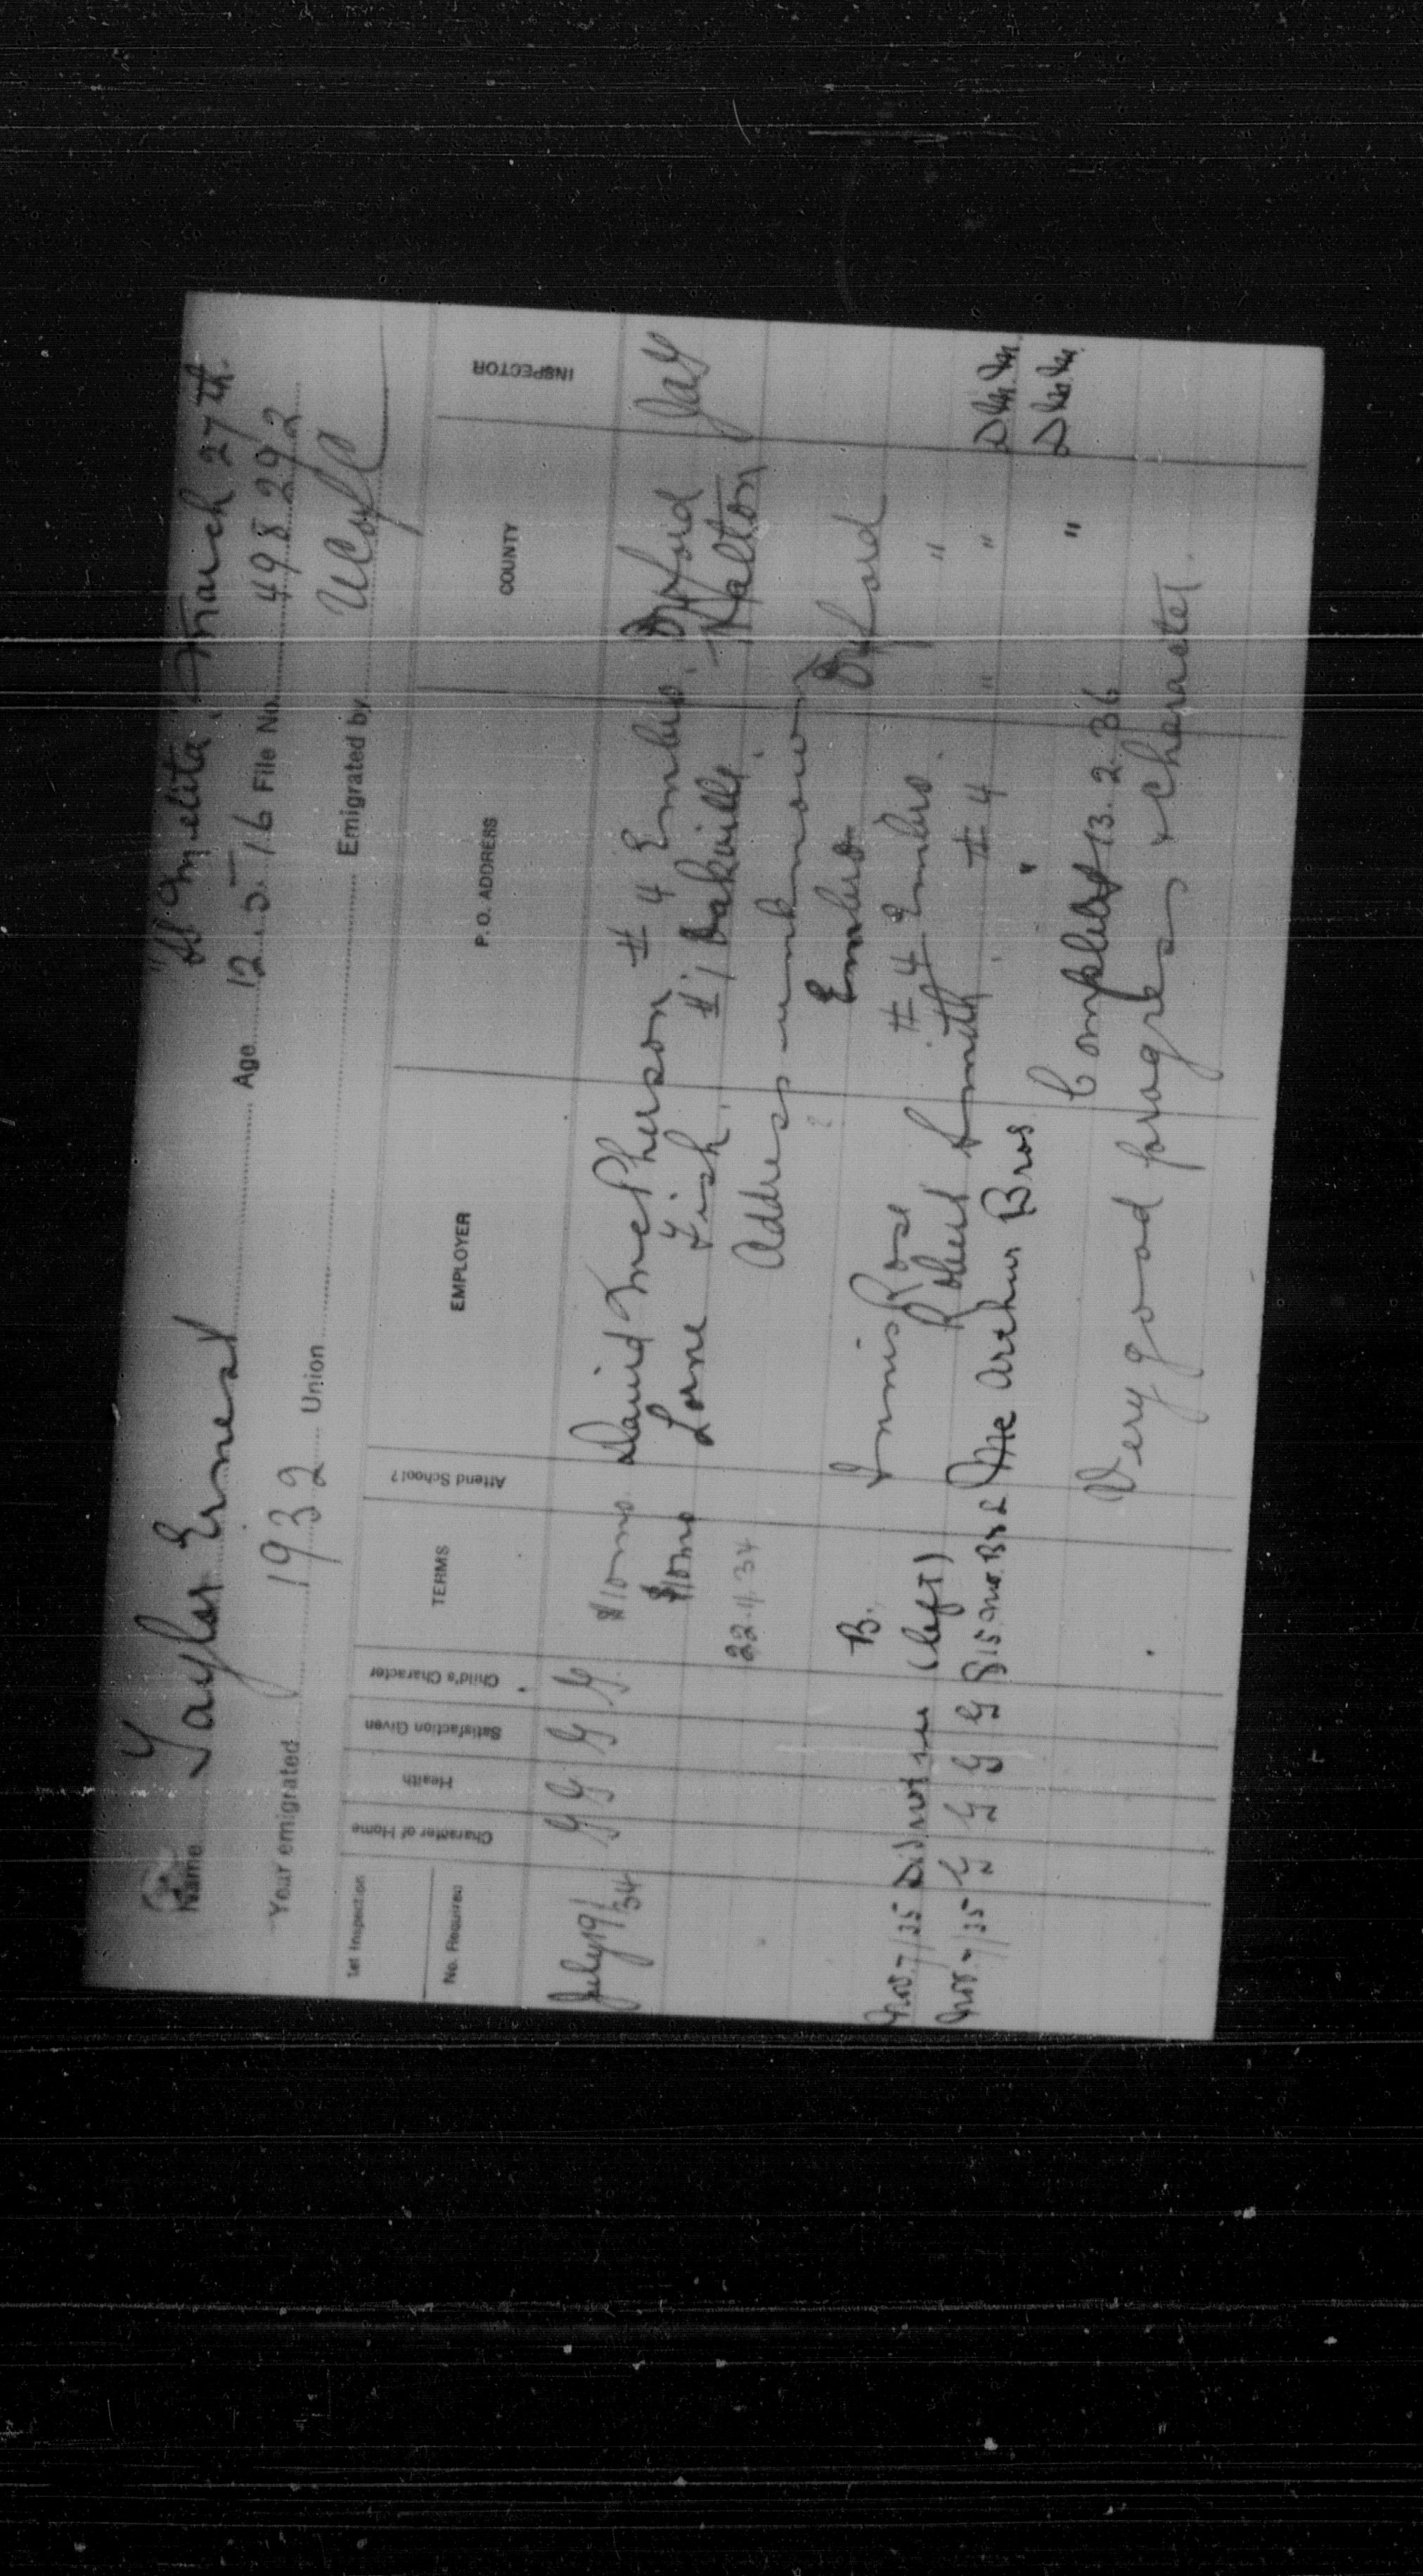 "SS Melita. March 27th.
Name Taylor Ernest Age 12-5-16 File No. 498292
Year emigrated 1932 Union Emigrated by
1st Inspection
No. Required
Character of Home
Health
Satisfaction Given
Child's Character
TERMS
Attend School?
EMPLOYER
P. O. ADDRESS
COUNTY
INSPECTOR
July 19/34 G G G G $10 mo David McPherson # 4 Embro. Oxford
$10 mo Lorne Fish. # 1 Oakville. Halton
22.11.34 Address unknown
B. Innis Ross Embro Oxford
Nov. 7/35 Did not see (left) Robert Smith # 4 Embro. "
Nov. 7/35 G G G G $15 mo. B & L McArthur Bros # 4 " "
Completed 13.2.36 "
Very good progress & character.